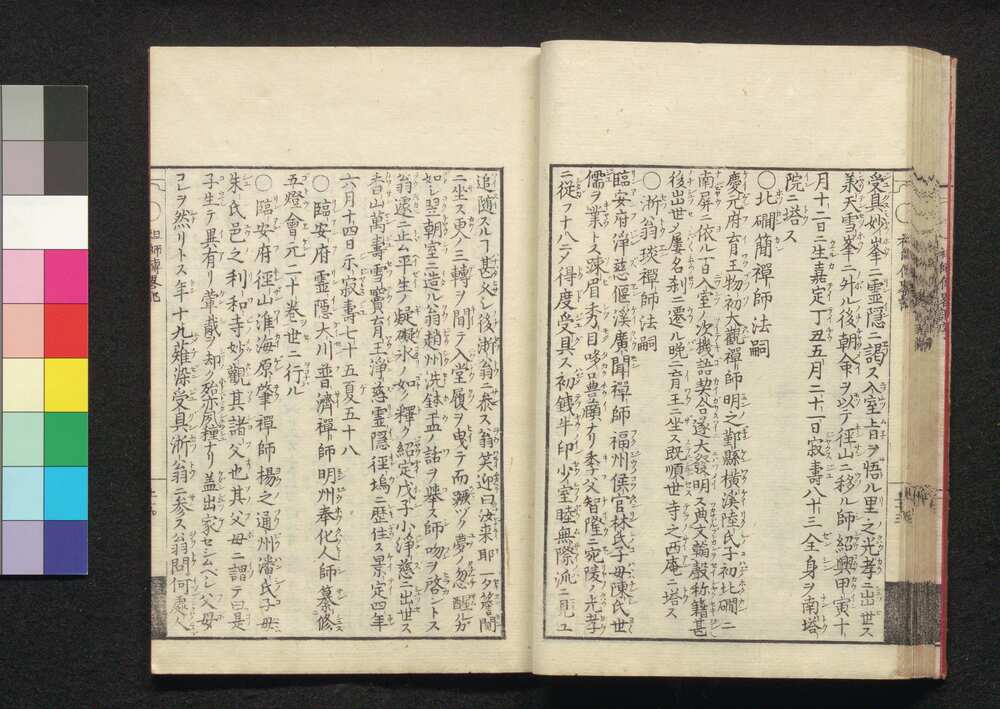 受具妙峯ニ霊隠ニ謁ス入室上旨ヲ悟ル里之光孝ニ出世ス
義天雪峯ニ外ル後朝命ヲ以テ徑山ニ移ル師紹興甲寅十
月十二日ニ生嘉定丁丑五月二十一日寂壽八十三全身ヲ南塔
院ニ塔ス
〇北磵簡禪師法嗣
慶元府育王物初大觀禪師明之鄞縣横溪陸氏子初北磵ニ
南屏ニ依ル一日入室ノ次機語契合遂大發明ス典文輪轂称籍甚
後出世ノ屢名刹ニ遷ル晩ニ育王ニ坐ス既順世寺之西庵ニ塔ス
〇浙翁琰禪師法嗣
臨安府淨慈偃溪廣聞禪師福州侯官林氏子母陳氏世
儒ヲ業トス疎眉秀目哆口豊頤ナリ季父智隆ニ宛陵ノ光孝
ニ従フ十八ニノ得度受具ス初鉄牛印少室睦無際派ニ見ユ
追随スルヿ甚久シ後浙翁ニ参ス翁笑迎曰汝来耶一夕簷間
ニ坐ス更ノ三轉ヲ聞テ入堂履ヲ曳テ而蹶ヅク夢ノ忽醒ルガ
如シ翌朝室ニ造ル翁趙州洗鉢盂ノ話ヲ擧ス師吻ヲ啓ントス
翁遽ニ止ム平生ノ凝礙氷ノ如ク釋ク紹定戊子小淨慈ニ出世ス
香山萬壽雪竇育王淨慈霊隠徑塢ニ歴住ス景定四年
六月十四日示寂壽七十五夏五十八
〇臨安府霊隠大川普濟禪師明州奉化人師纂修
五燈會元二十巻世ニ行ル
〇臨安府徑山淮海原肇禪師楊之通州潘氏子母
朱氏邑之利和寺妙觀其諸父也其父母ニ謂テ曰是
子生テ異有リ 盖出家セシムベシ父母
コレヲ然リトス年十九薙染受具浙翁ニ参ス翁問何處人